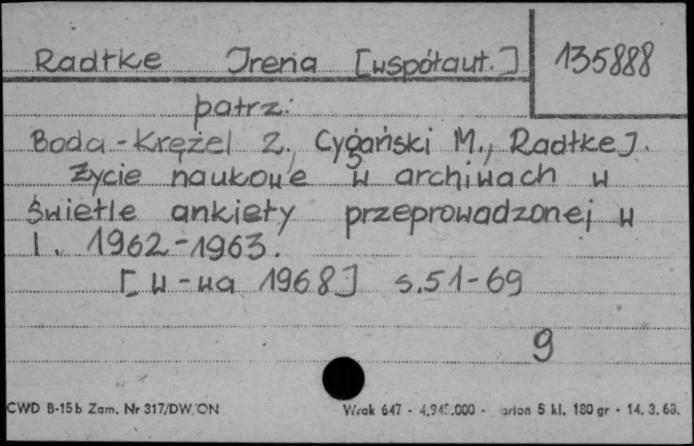 Radtke Irena [współaut.] 135888
patrz:
Boda-Krężel Z., Cygański M., Radtke J.
Życie naukowe w archiwach w
świetle ankiety przeprowadzonej w
l. 1962-1963.
[W-wa 1968] s.51-69
9
CWD B-15b Zam. Nr 317/DW/ON Wrak 647 - 4.945.000 - 5 kl. 180 gr - 14. 3. 68.